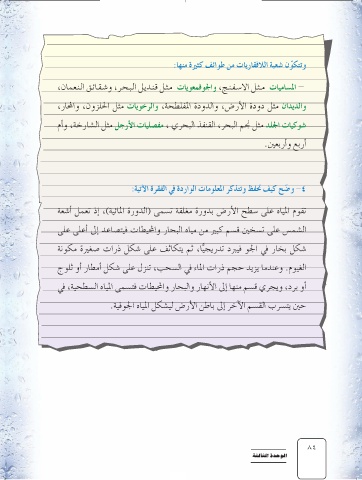 وتتكوّن شعبة اللافقاريات من طوائف كثيرة منها:
– المساميات مثل الاسفنج، والجوفمعويات مثل قنديل البحر، وشقائق النعمان،
والديدان مثل دودة الأرض، والدودة المفلطحة، والرخويات مثل الحلزون، والمحار،
شوكيات الجلد مثل نجم البحر، القنفذ البحري، مفصليات الأرجل مثل الشارخة، وأم
أربع وأربعين.
٤ – وضح كيف تحفظ وتتذكر المعلومات الواردة في الفقرة الآتية:
تقوم المياه على سطح الأرض بدورة مغلقة تسمى (الدورة المائية)، إذ تعمل أشعة
الشمس على تسخين قسم كبير من مياه البحار والمحيطات فيتصاعد إلى أعلى على
شكل بخار في الجو فيبرد تدريجيًا، ثم يتكاثف على شكل ذرات صغيرة مكونة
الغيوم. وعندما يزيد حجم ذرات الماء في السحب، تنزل على شكل أمطار أو ثلوج
أو برد، ويجري قسم منها إلى الأنهار والبحار والمحيطات فتسمى المياه السطحية، في
حين يتسرب القسم الآخر إلى باطن الأرض ليشكل المياه الجوفية.
٨٤
الوحدة الثالثة